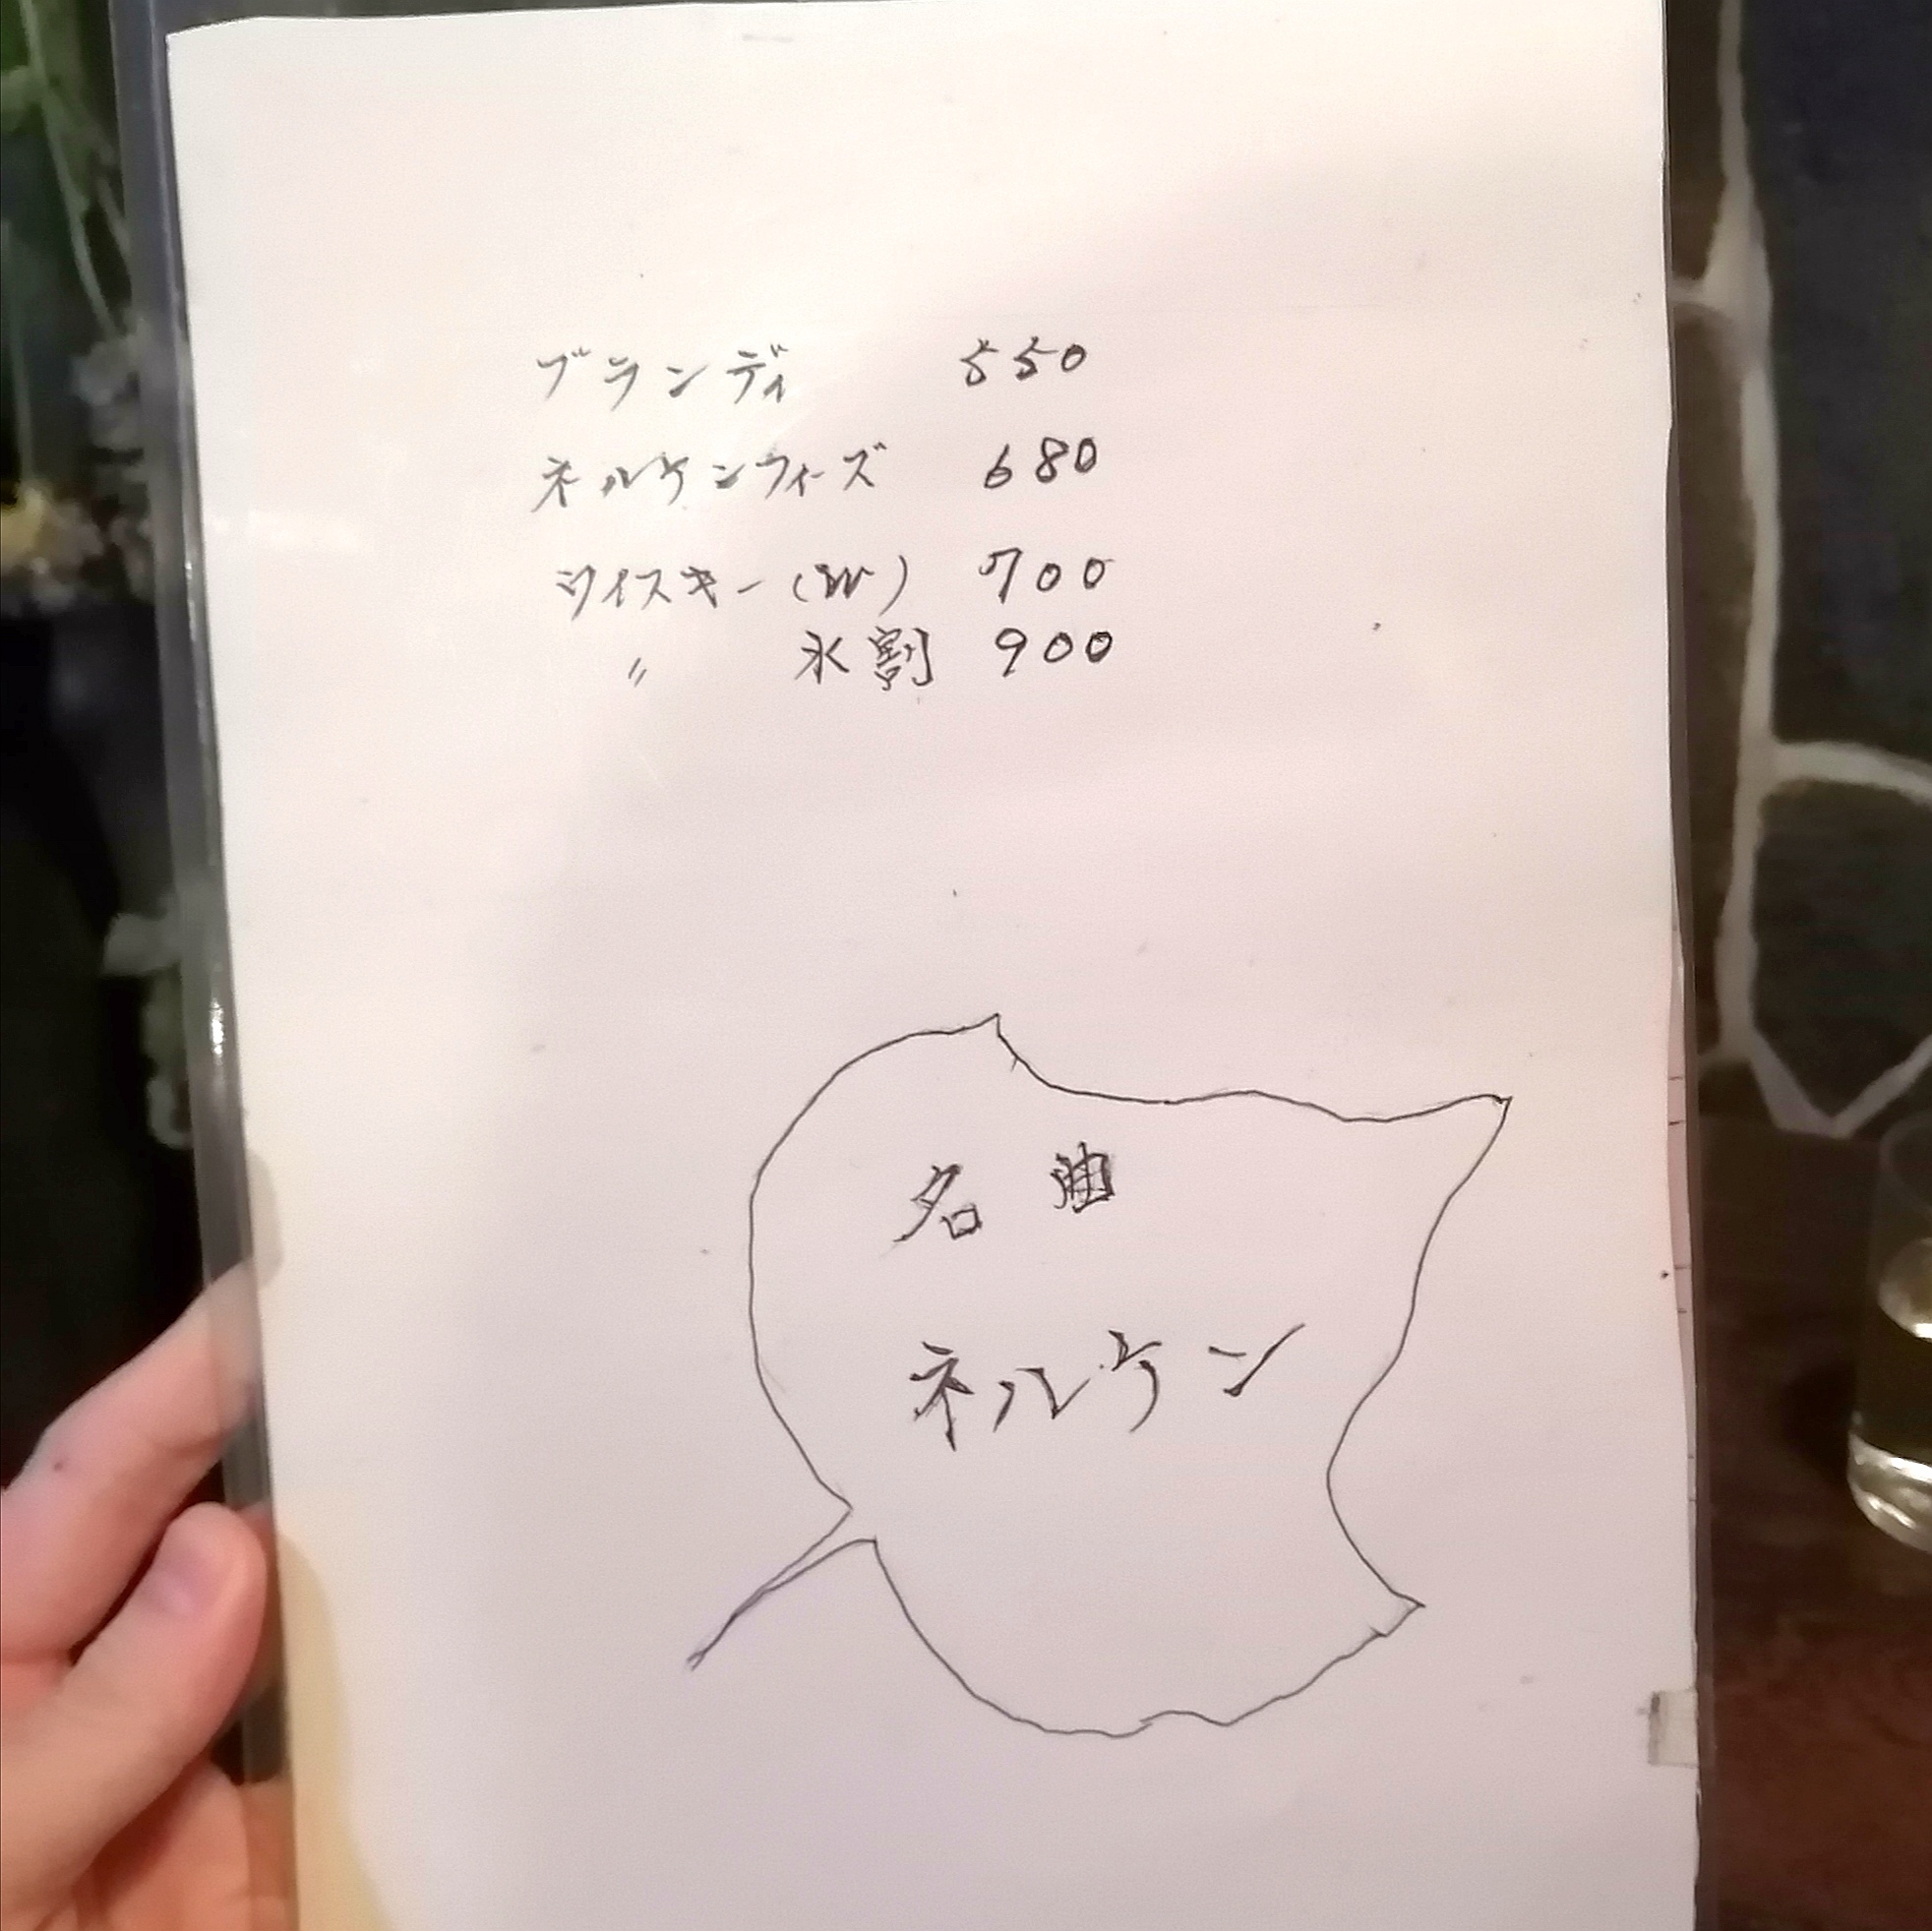 ブランディ 550
ネルケンフィーズ 680
ウイスキー(W) 700
〃 水割 900
名曲
ネルケン